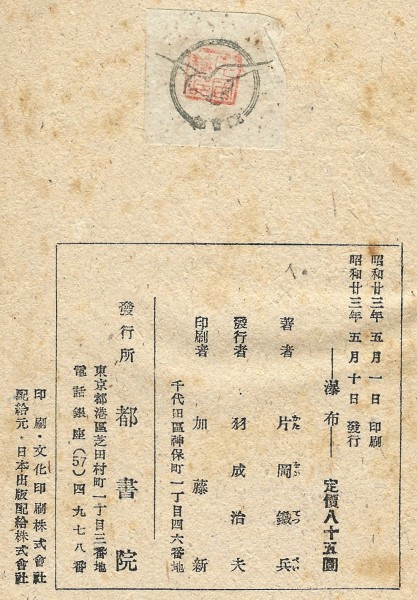 昭和廿三年五月一日 印刷
昭和廿三年五月十日 發行
―瀑布― 定價八十五圓
著者 片岡鐵兵
かたをかてつぺい
發行者 羽成治夫
印刷者 加藤新
千代田區神保町一丁目四六番地
發行所 都書院
東京都港區芝田村町一丁目三番地
電話銀座(57)四九七八番
印刷・文化印刷株式會社
配給元・日本出版配給株式會社